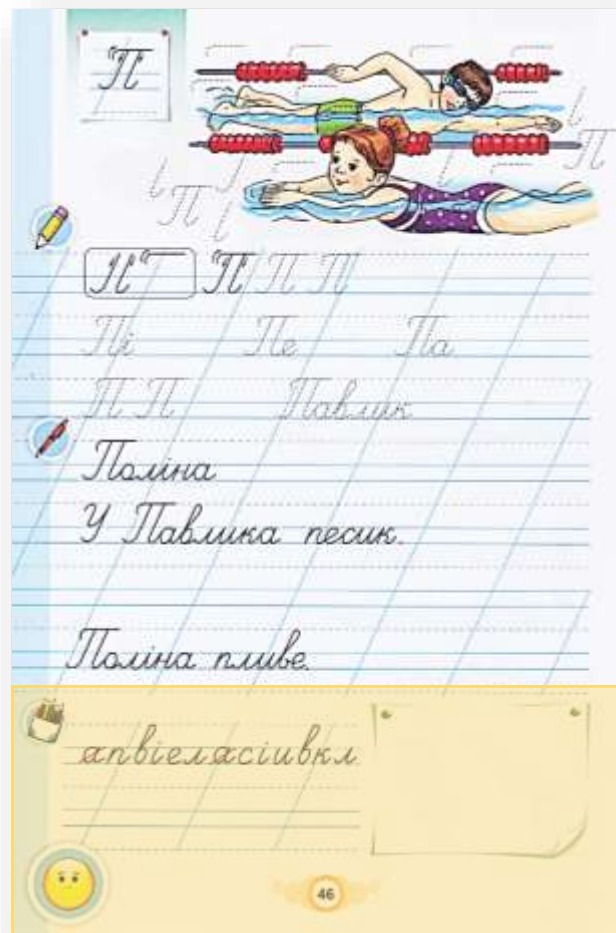 П
П П
П П П П
Пі Пе Па
П П Павлик
Поліна
У Павлика песик.
Поліна пливе.
апвіеласіивкл
46